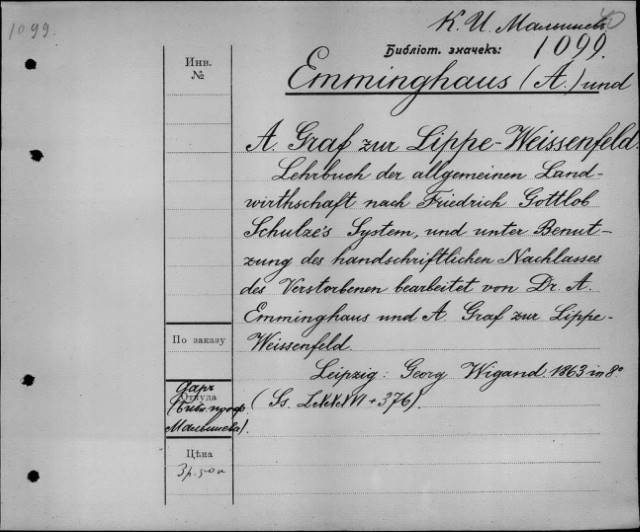 1099.
К. И. Малышевъ
Библіот. значекъ:
1099.
Инв.
№
Emminghaus (A.) und
A. Graf zur Lippe-Weissenfeld.
Lehrbuch der allgemeinen Land-
wirthschaft nach Friedrich Gottlob
Schulze's System, und unter Benut-
zung des handschriftlichen Nachlasses
des Verstorbenen bearbeitet von Dr. A.
Emminghaus und A. Graf zur Lippe-
Weissenfeld.
По заказу
Leipzig: Georg Wigand 1863 in 8°
Даръ
Откуда
(Библ. проф.
Малышева).
(Ss. LXXXVI + 376).
Цѣна
3 р.